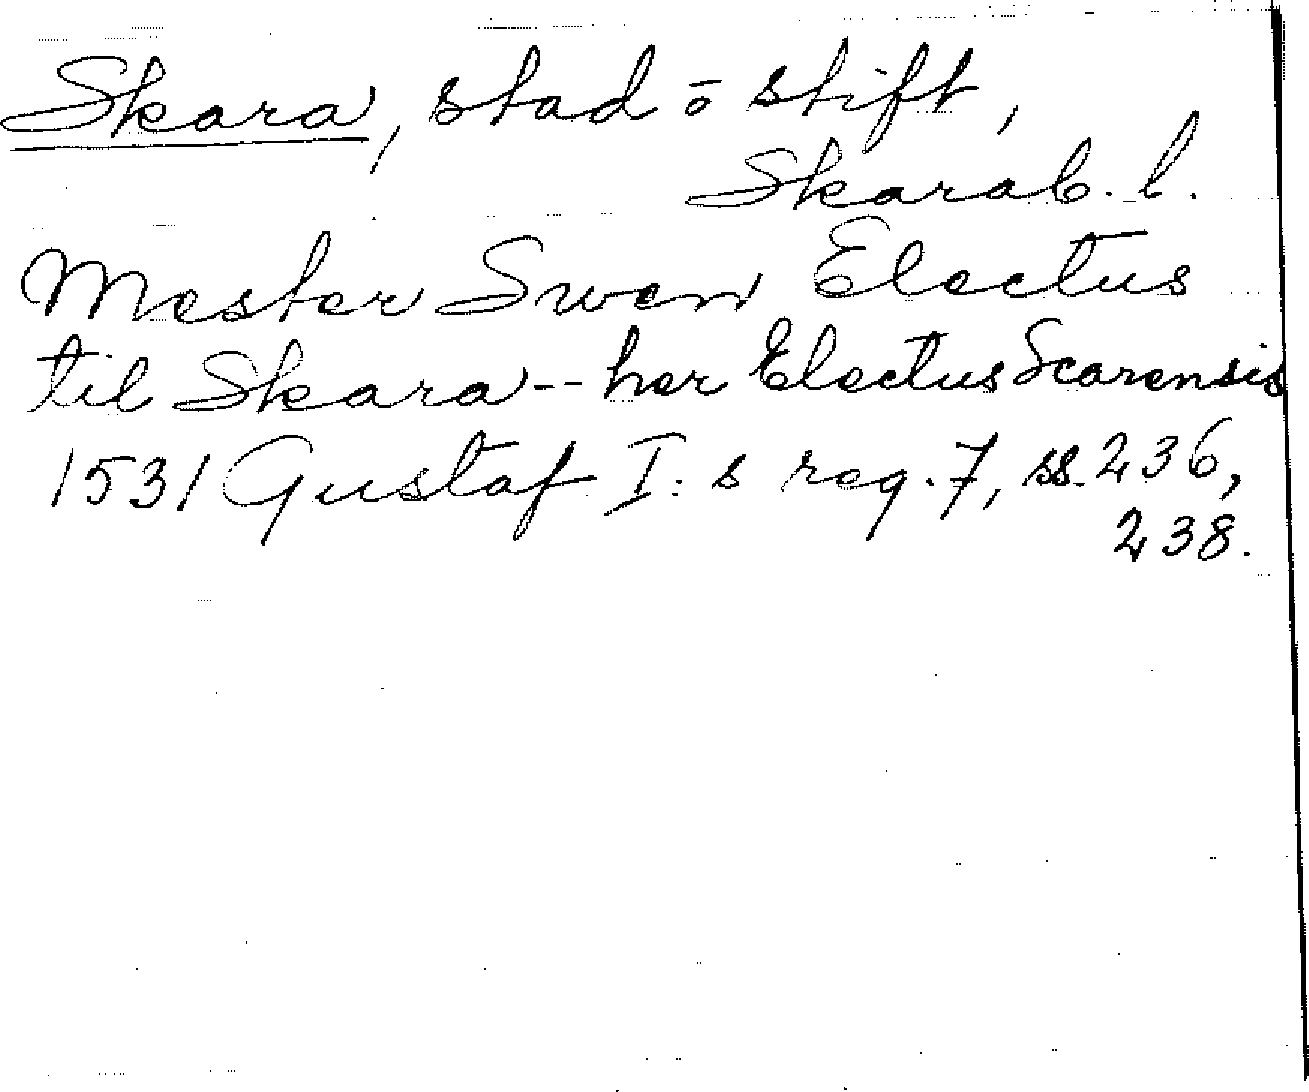 Skara, stad o stift,
Skarab. l.
Mester Swen Electus
til Skara -- her Electus Scarensis
1531 Gustaf I:s reg. 7, ss. 236,
238.